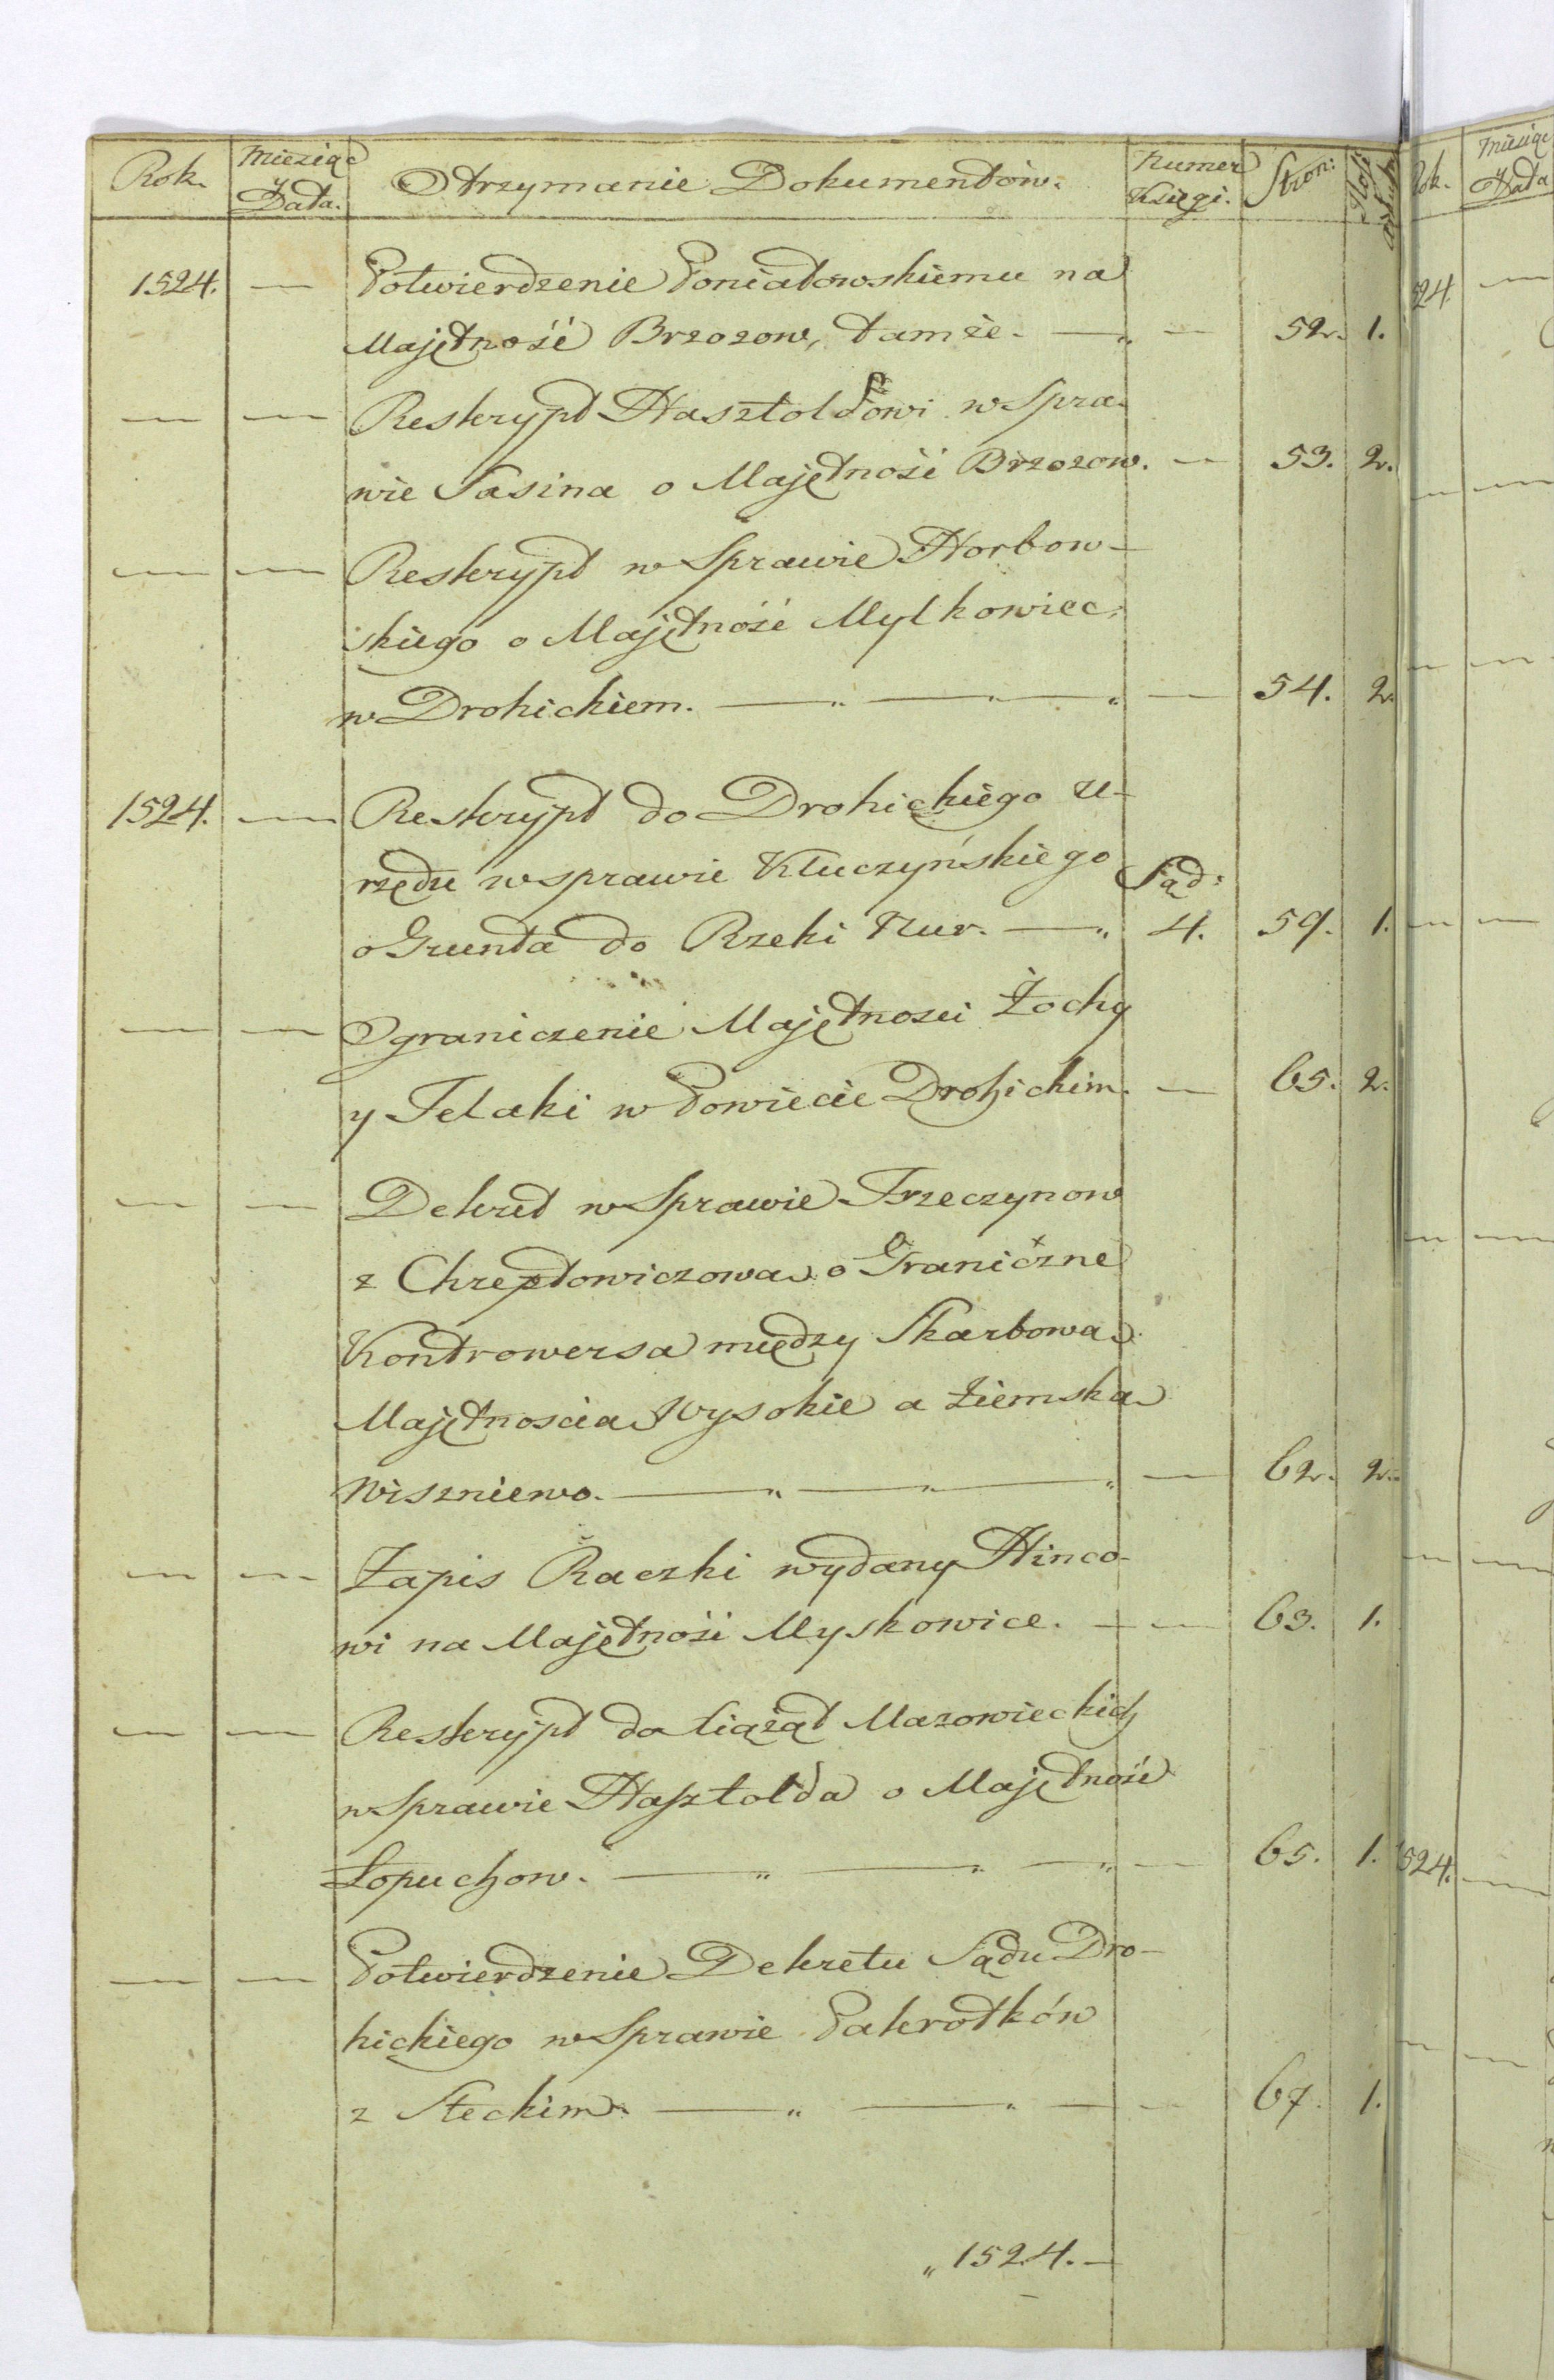 Rok. Miesiąc y Data. Otrzymanie Dokumentów. Numer Księgi. Stron:
1524. — Potwierdzenie Poniatowskiemu na
Majętność Brzozow, tamże. — 52. 1.
— — Reskrypt Hasztoldowi w Spra-
wie Sasina o Majętność Brzozow. — 53. 2.
— — Reskrypt w Sprawie Horbow-
skiego o Majętność Mylkowiec
w Drohickiem. — 54. 2.
1524. — Reskrypt do Drohickiego U-
rzędu w sprawie Kluczyńskiego Sąd:
o Grunta do Rzeki Nur. — 4. 59. 1.
— — Ograniczenie Majętnosci Żochy
y Telaki w Powiecie Drohickim. — 65. 2.
— — Dekret w Sprawie Trzeczynow
z Chreptowiczową o Graniczne
Kontrowersa między Skarbową
Majętnoscią Wysokie a Ziemską
Wiszniewo. — 62. 2.
— — Zapis Raczki wydany Hinco-
wi na Majętność Myskowice. — 63. 1.
— — Reskrypt do Xiążąt Mazowieckich
w Sprawie Hasztolda o Majętność
Łopuchow. — 65. 1.
— — Potwierdzenie Dekretu Sądu Dro-
hickiego w Sprawie Pakrotków
z Steckim. — 67. 1.
„1524. —
Rok. Miesiąc y Data
524. —
524. —